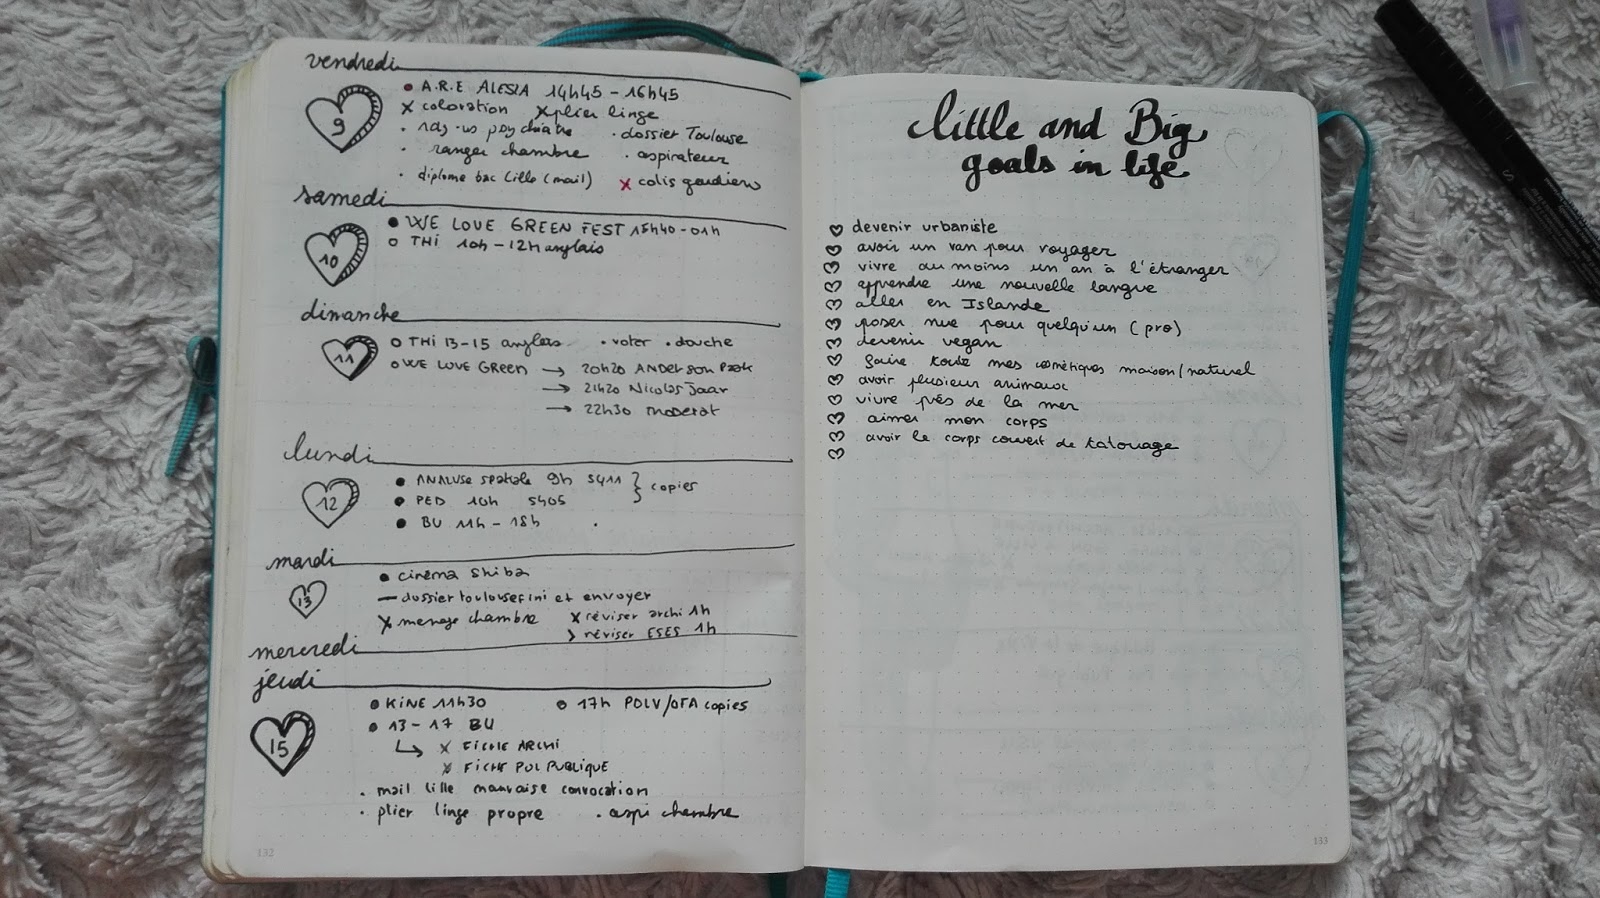 vendredi
9
• A.R.E ALESIA 14h45 - 16h45
x coloration x plier linge
• rdv us psychiatre • dossier Toulouse
• ranger chambre • aspirateur
• diplome bac Lille (mail) x colis
samedi
10
• WE LOVE GREEN FEST 15h40 - 01h
o THI 10h - 12h anglais
dimanche
11
o THI 13-15 anglais • voter • douche
o WE LOVE GREEN → 20h20 ANDERSON Paak
→ 21h20 Nicolas Jaar
→ 22h30 moderat
lundi
12
• ANALYSE spatiale 9h S411 } copies
• PED 10h S405
• BU 11h - 18h
mardi
13
• cinema Shiba
— dossier toulouse fini et envoyer
x menage chambre x réviser archi 1h
> réviser ESES 1h
mercredi
jeudi
15
• KINE 11h30 o 17h POLV/OFA copies
• 13 - 17 BU
x FICHE ARCHI
x FICHE POL PUBLIQUE
• mail lille mauvaise convocation
• plier linge propre • aspi chambre
132
little and Big
goals in life
♡ devenir urbaniste
♡ avoir un van pour voyager
♡ vivre au moins un an à l'étranger
♡ apprendre une nouvelle langue
♡ aller en Islande
♡ poser nue pour quelqu'un (pro)
♡ devenir vegan
♡ faire toute mes cosmétiques maison/naturel
♡ avoir plusieur animaux
♡ vivre près de la mer
♡ aimer mon corps
♡ avoir le corps couvert de tatouage
♡
133
S